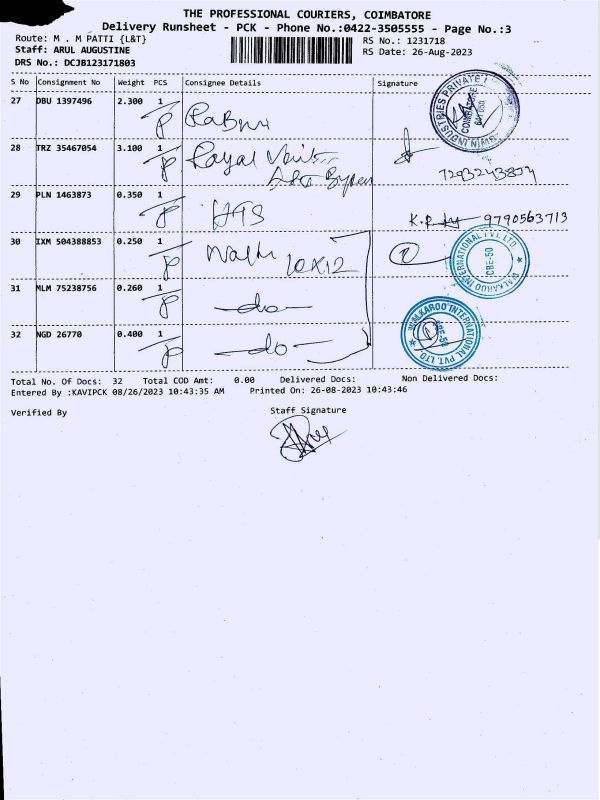 THE PROFESSIONAL COURIERS, COIMBATORE
Delivery Runsheet - PCK - Phone No.:0422-3505555 - Page No.:3
Route: M . M PATTI {L&T}
RS No.: 1231718
Staff: ARUL AUGUSTINE
RS Date: 26-Aug-2023
DRS No.: DCJB123171803
S No Consignment No Weight PCS Consignee Details Signature
27 DBU 1397496 2.300 1
28 TRZ 35467054 3.100 1 Royal
7293243834
29 PLN 1463873 0.350 1 HTS
9790563713
30 IXM 504388853 0.250 1 10X12
WALKAROO INTERNATIONAL PVT. LTD. CBE-50
31 MLM 75238756 0.260 1 -do-
32 NGD 26770 0.400 1 -do-
WALKAROO INTERNATIONAL PVT. LTD CBE-50
Total No. Of Docs: 32 Total COD Amt: 0.00 Delivered Docs: Non Delivered Docs:
Entered By :KAVIPCK 08/26/2023 10:43:35 AM Printed On: 26-08-2023 10:43:46
Verified By Staff Signature